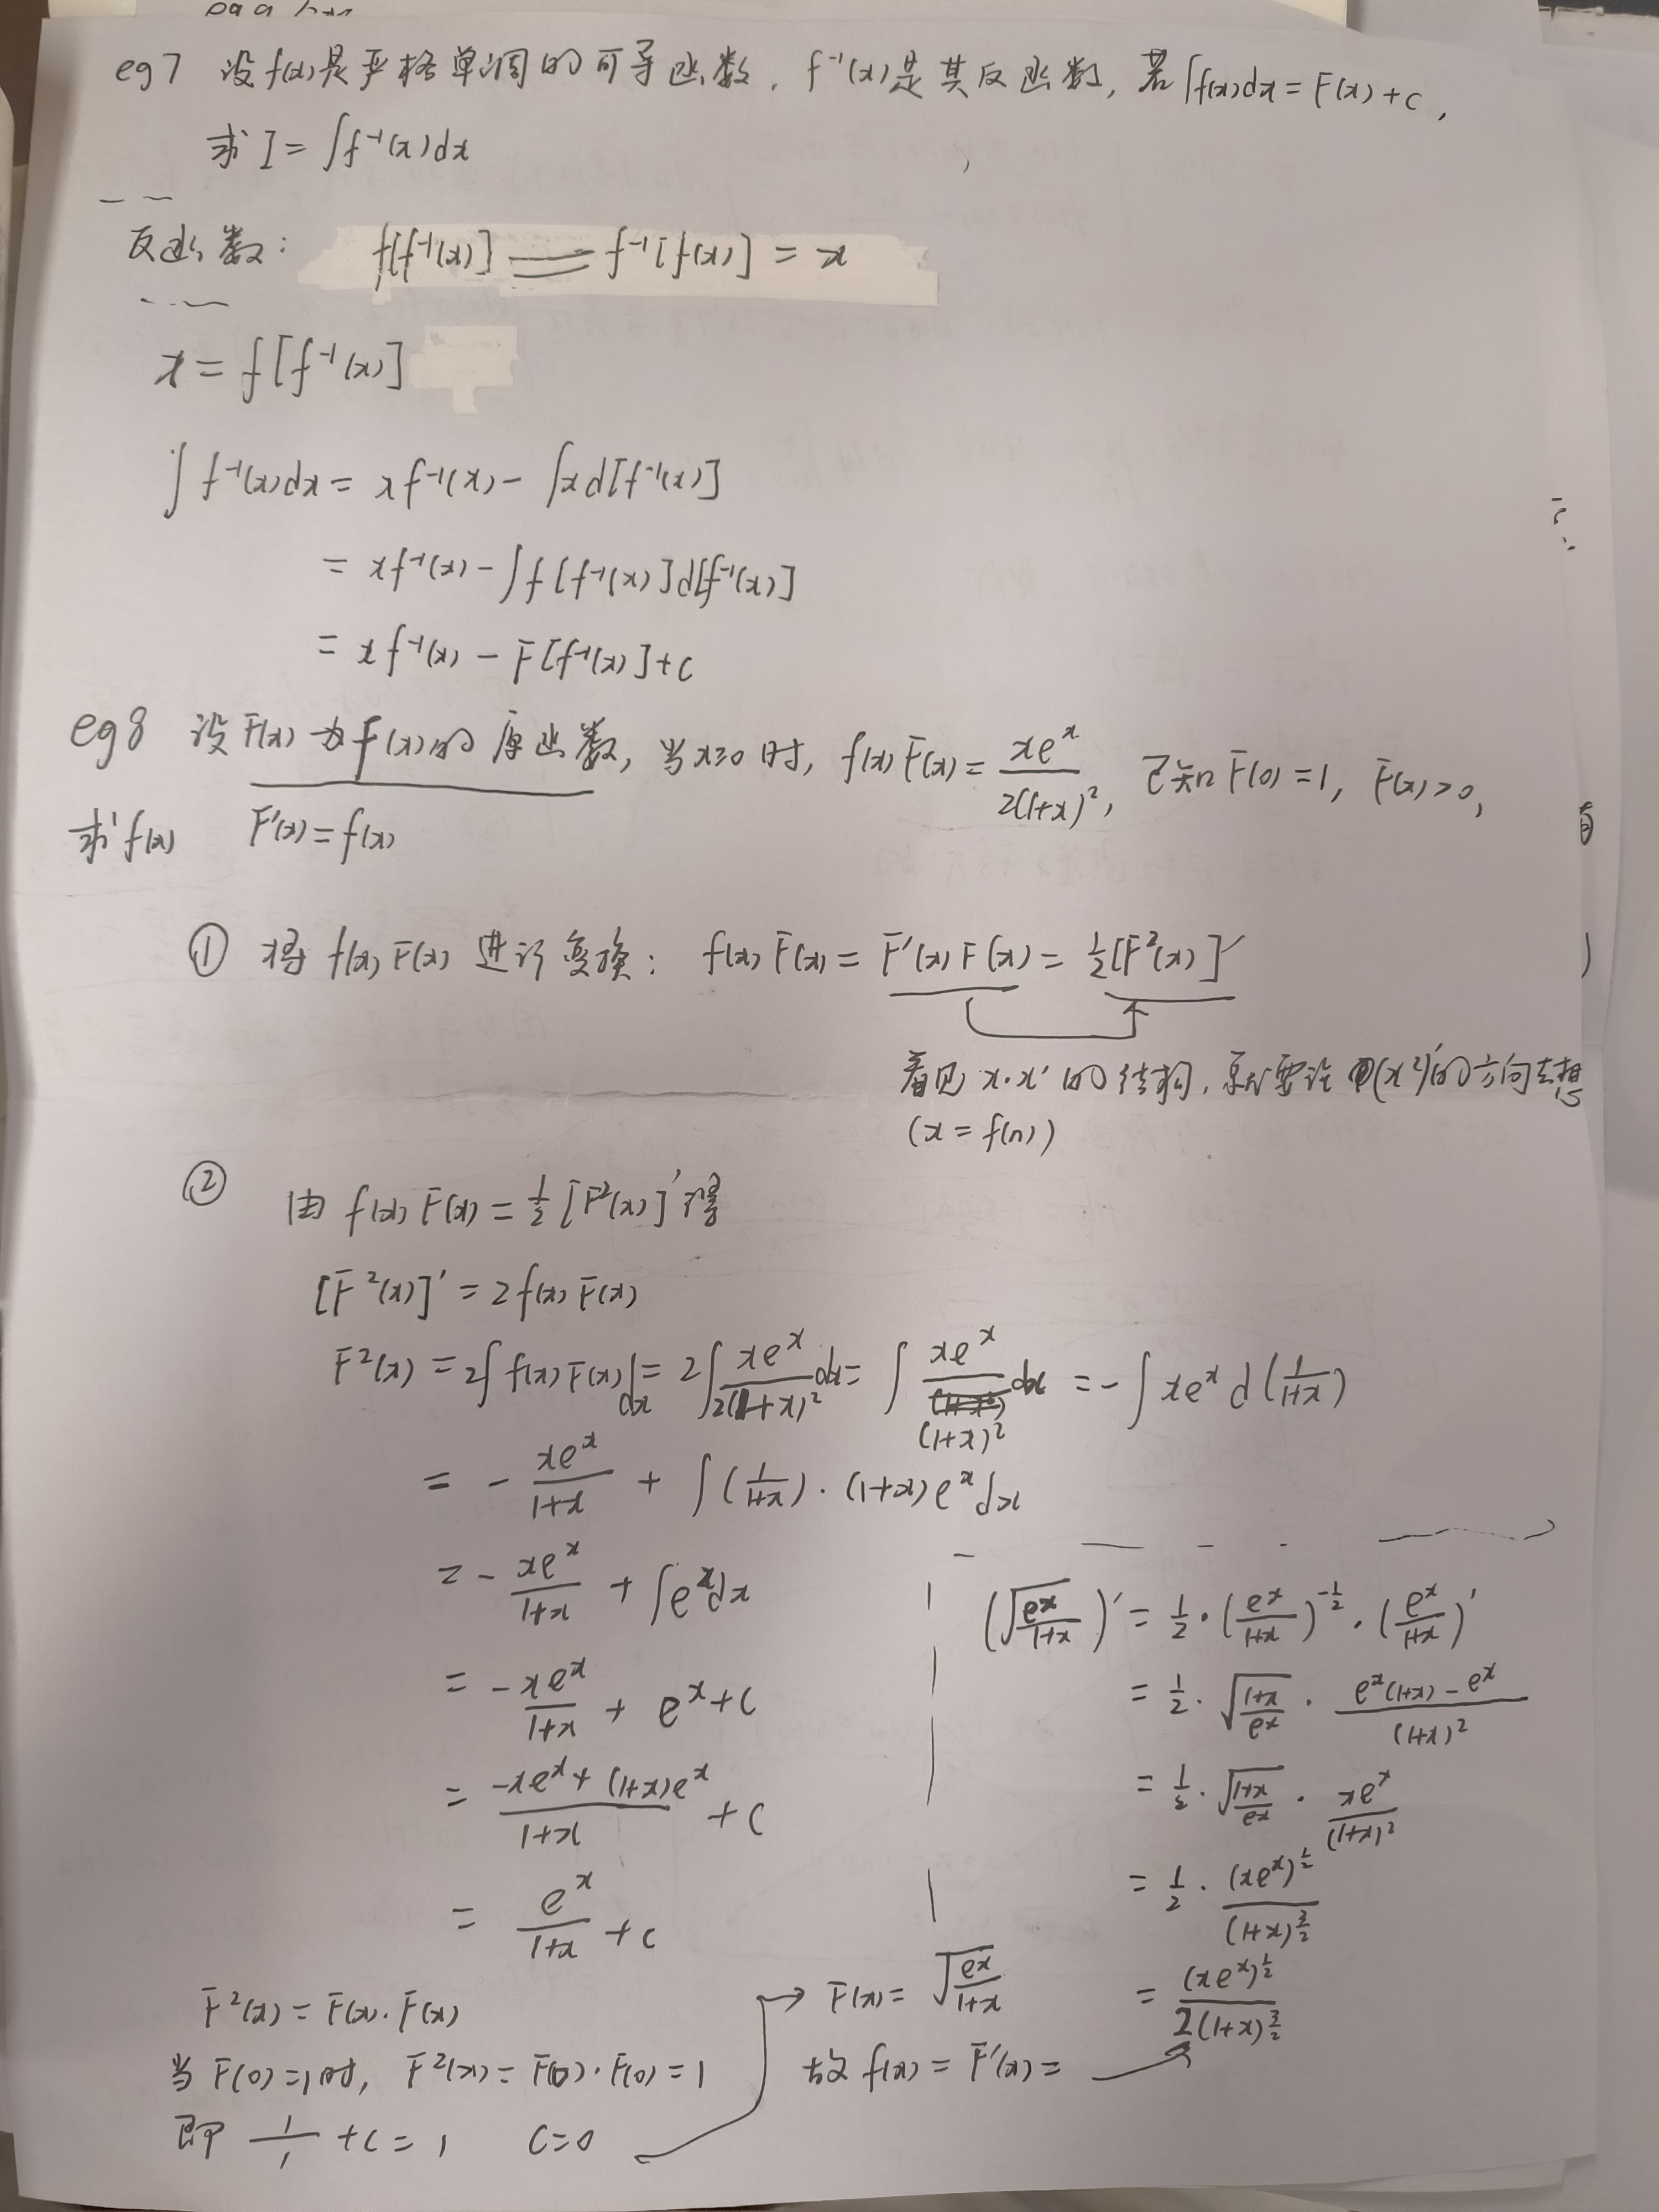 eg7 设f(x)是严格单调的可导函数, f⁻¹(x)是其反函数, 若∫f(x)dx = F(x)+c,
求 I = ∫f⁻¹(x)dx
反函数: f[f⁻¹(x)] = f⁻¹[f(x)] = x
x = f[f⁻¹(x)]
∫f⁻¹(x)dx = xf⁻¹(x) - ∫xd[f⁻¹(x)]
= xf⁻¹(x) - ∫f[f⁻¹(x)]d[f⁻¹(x)]
= xf⁻¹(x) - F[f⁻¹(x)]+c
eg8 设F(x)为f(x)的原函数, 当x≥0时, f(x)F(x) = xeˣ/2(1+x)², 已知F(0)=1, F(x)>0,
求f(x) F'(x) = f(x)
① 将f(x)F(x)进行变换: f(x)F(x) = F'(x)F(x) = ½[F²(x)]'
看见x·x'的结构, 就要让(x²)'的方向去想
(x = f(n))
② 由 f(x)F(x) = ½[F²(x)]' 得
[F²(x)]' = 2f(x)F(x)
F²(x) = 2∫f(x)F(x)dx = 2∫xeˣ/2(1+x)² dx = ∫xeˣ/(1+x)² dx = -∫xeˣd(1/1+x)
= - xeˣ/1+x + ∫(1/1+x)·(1+x)eˣdx
= - xeˣ/1+x + ∫eˣdx
= -xeˣ/1+x + eˣ+c
= -xeˣ+(1+x)eˣ/1+x + c
= eˣ/1+x + c
F²(x) = F(x)·F(x)
当F(0)=1时, F²(x) = F(0)·F(0) = 1
即 1/1 + c = 1 C=0
→ F(x) = √eˣ/1+x
故 f(x) = F'(x) =
(√eˣ/1+x)' = ½·(eˣ/1+x)^-½·(eˣ/1+x)'
= ½·√1+x/eˣ · eˣ(1+x)-eˣ/(1+x)²
= ½·√1+x/eˣ · xeˣ/(1+x)²
= ½·(xeˣ)^½/(1+x)^3/2
= (xeˣ)^½/2(1+x)^3/2